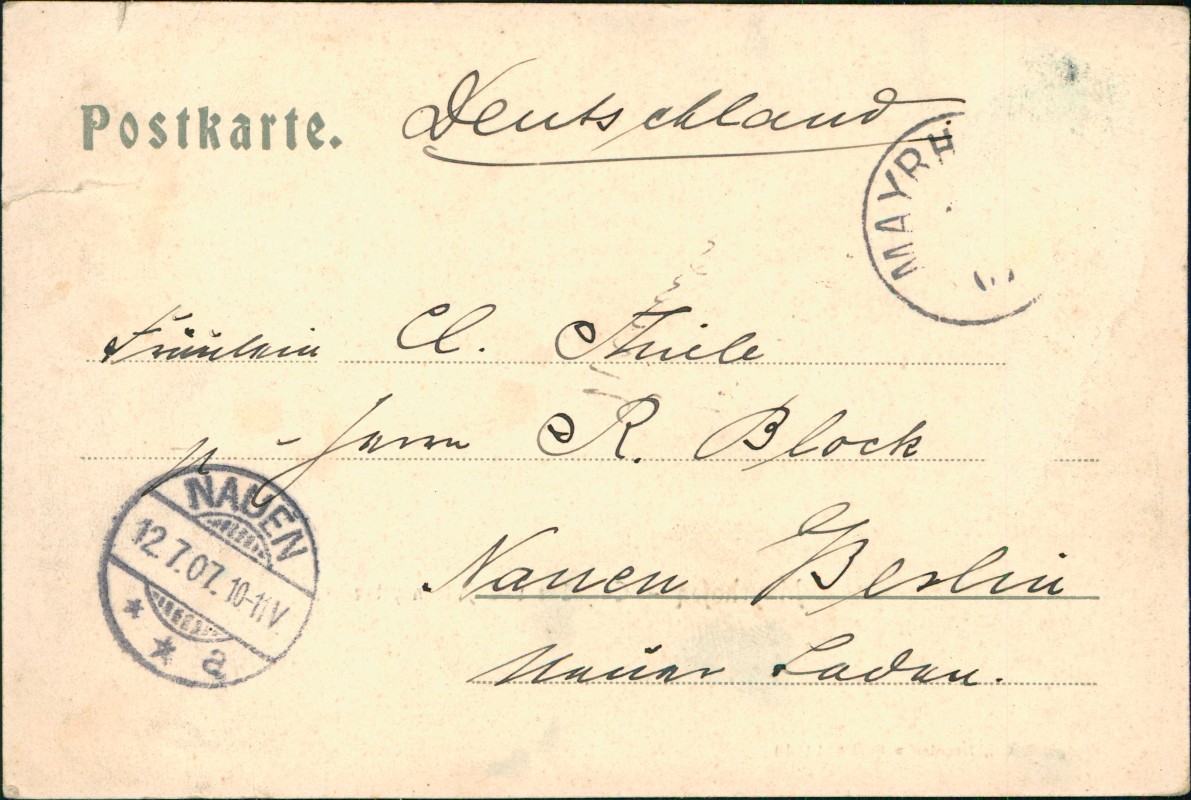 Postkarte.
Deutschland
MAYRH
Fräulein Cl. Thiele
Herrn R. Block
NAUEN
12.7.07. 10-11V
* * a
Nauen Berlin
Neuer Laden.